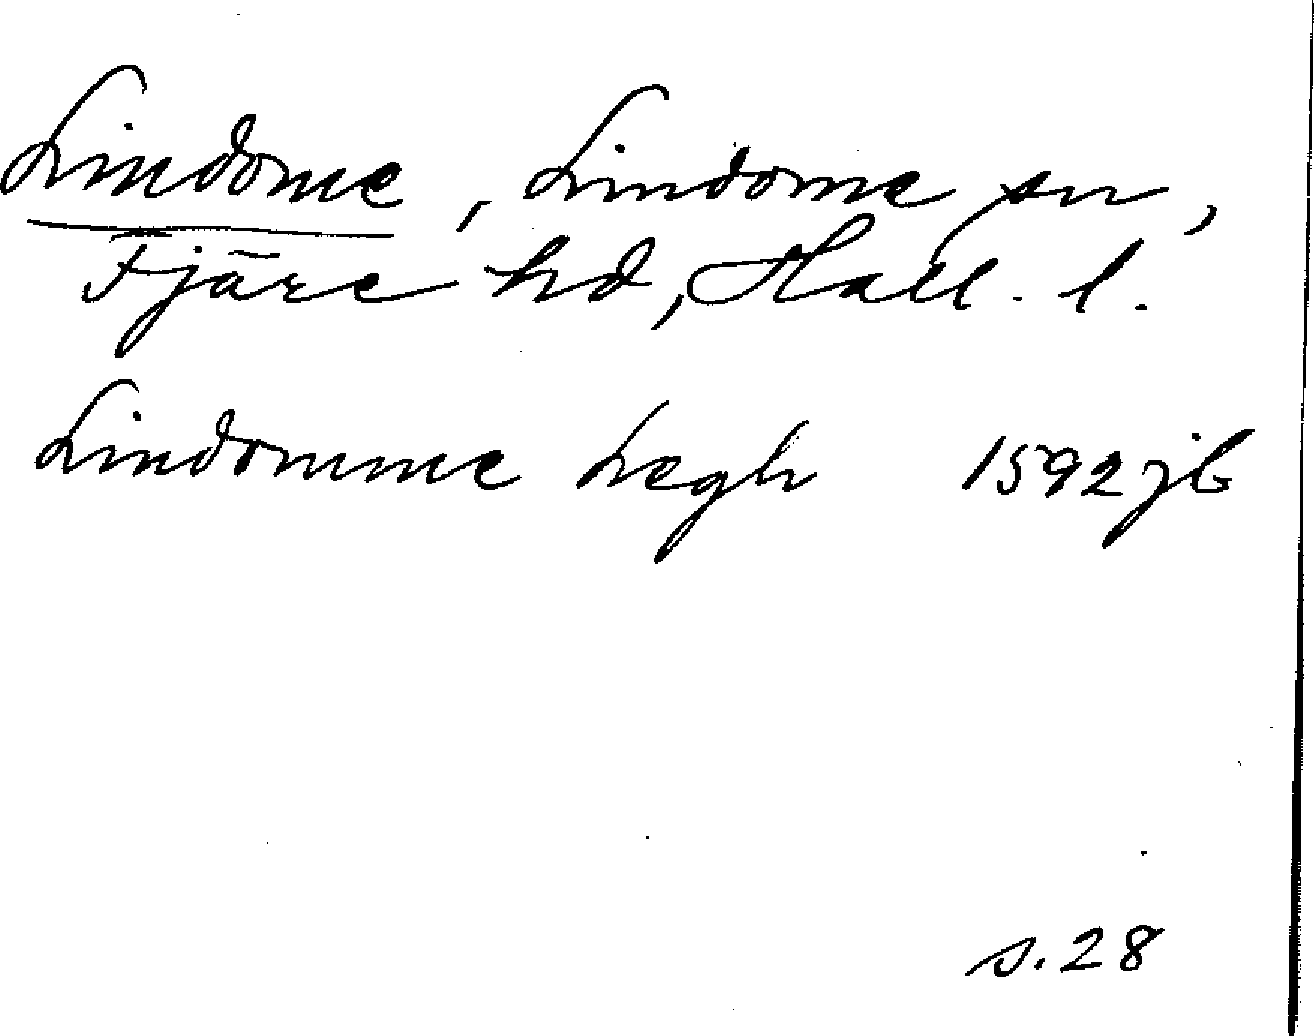 Lindome, Lindome sn,
Fjäre hd, Hall. l.
Lindomme Legh 1592 jb
s. 28